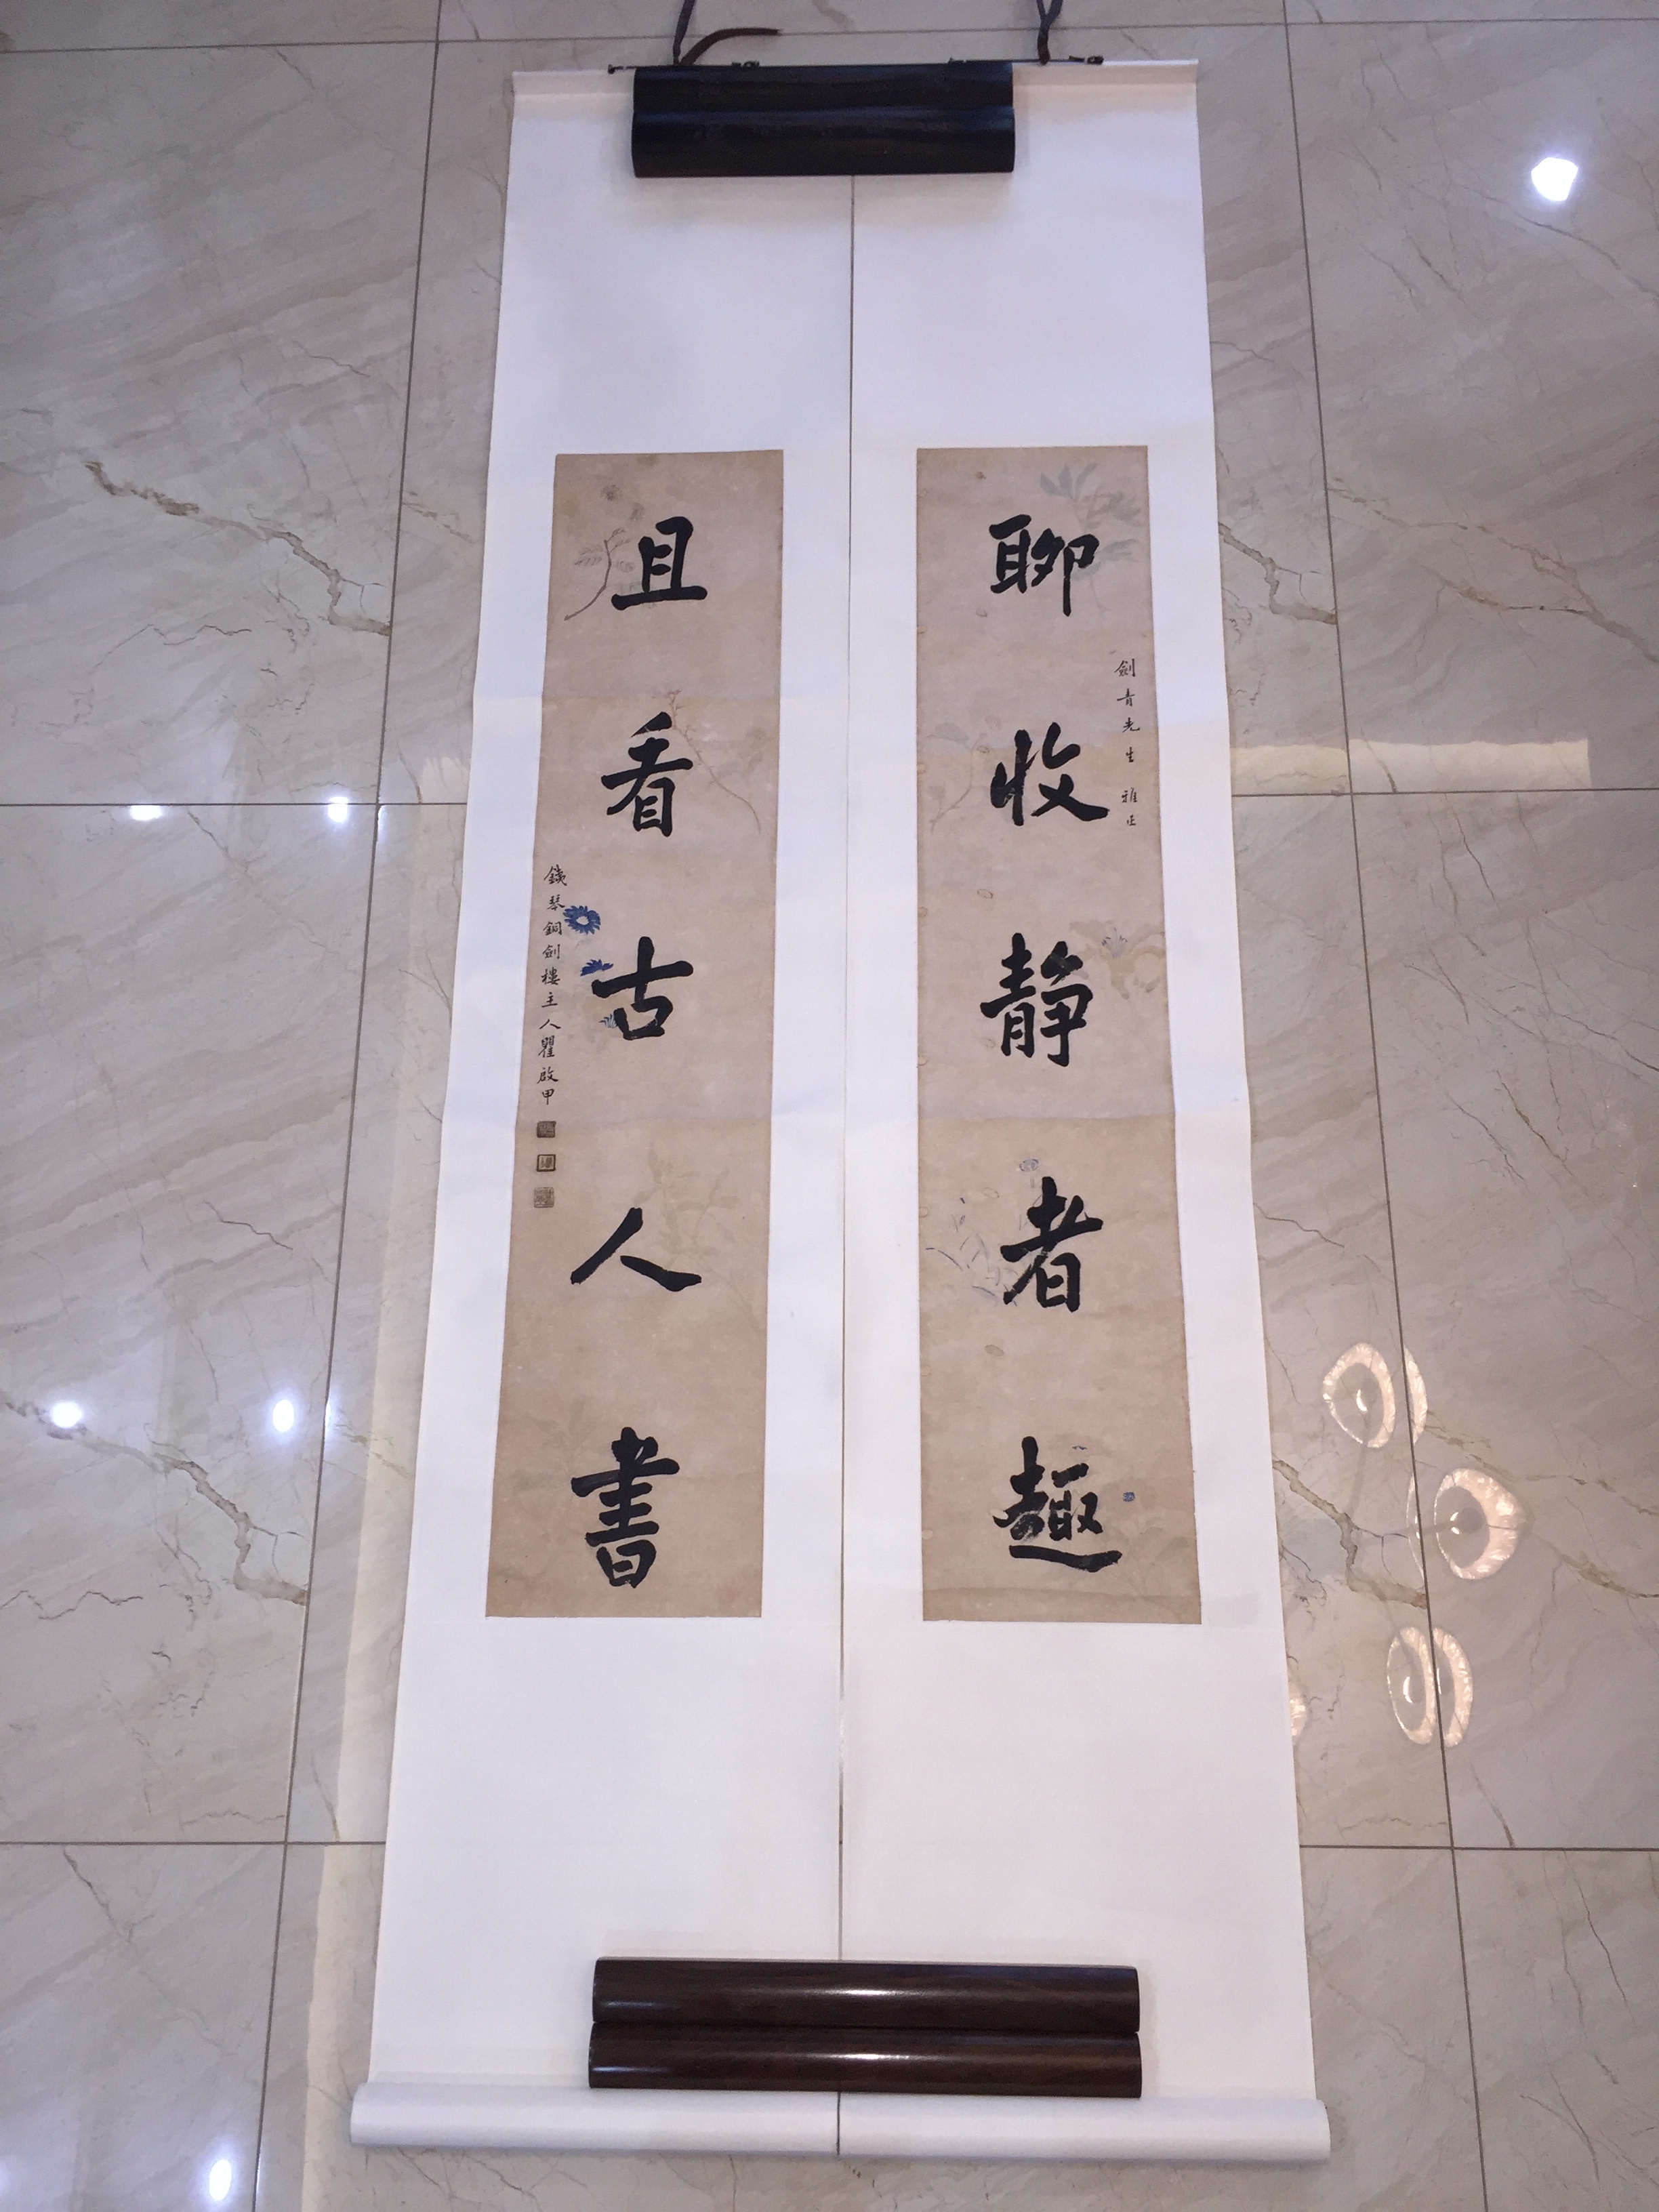 聊收靜者趣
劍青先生 雅正
且看古人書
鐵琴銅劍樓主人瞿啟甲